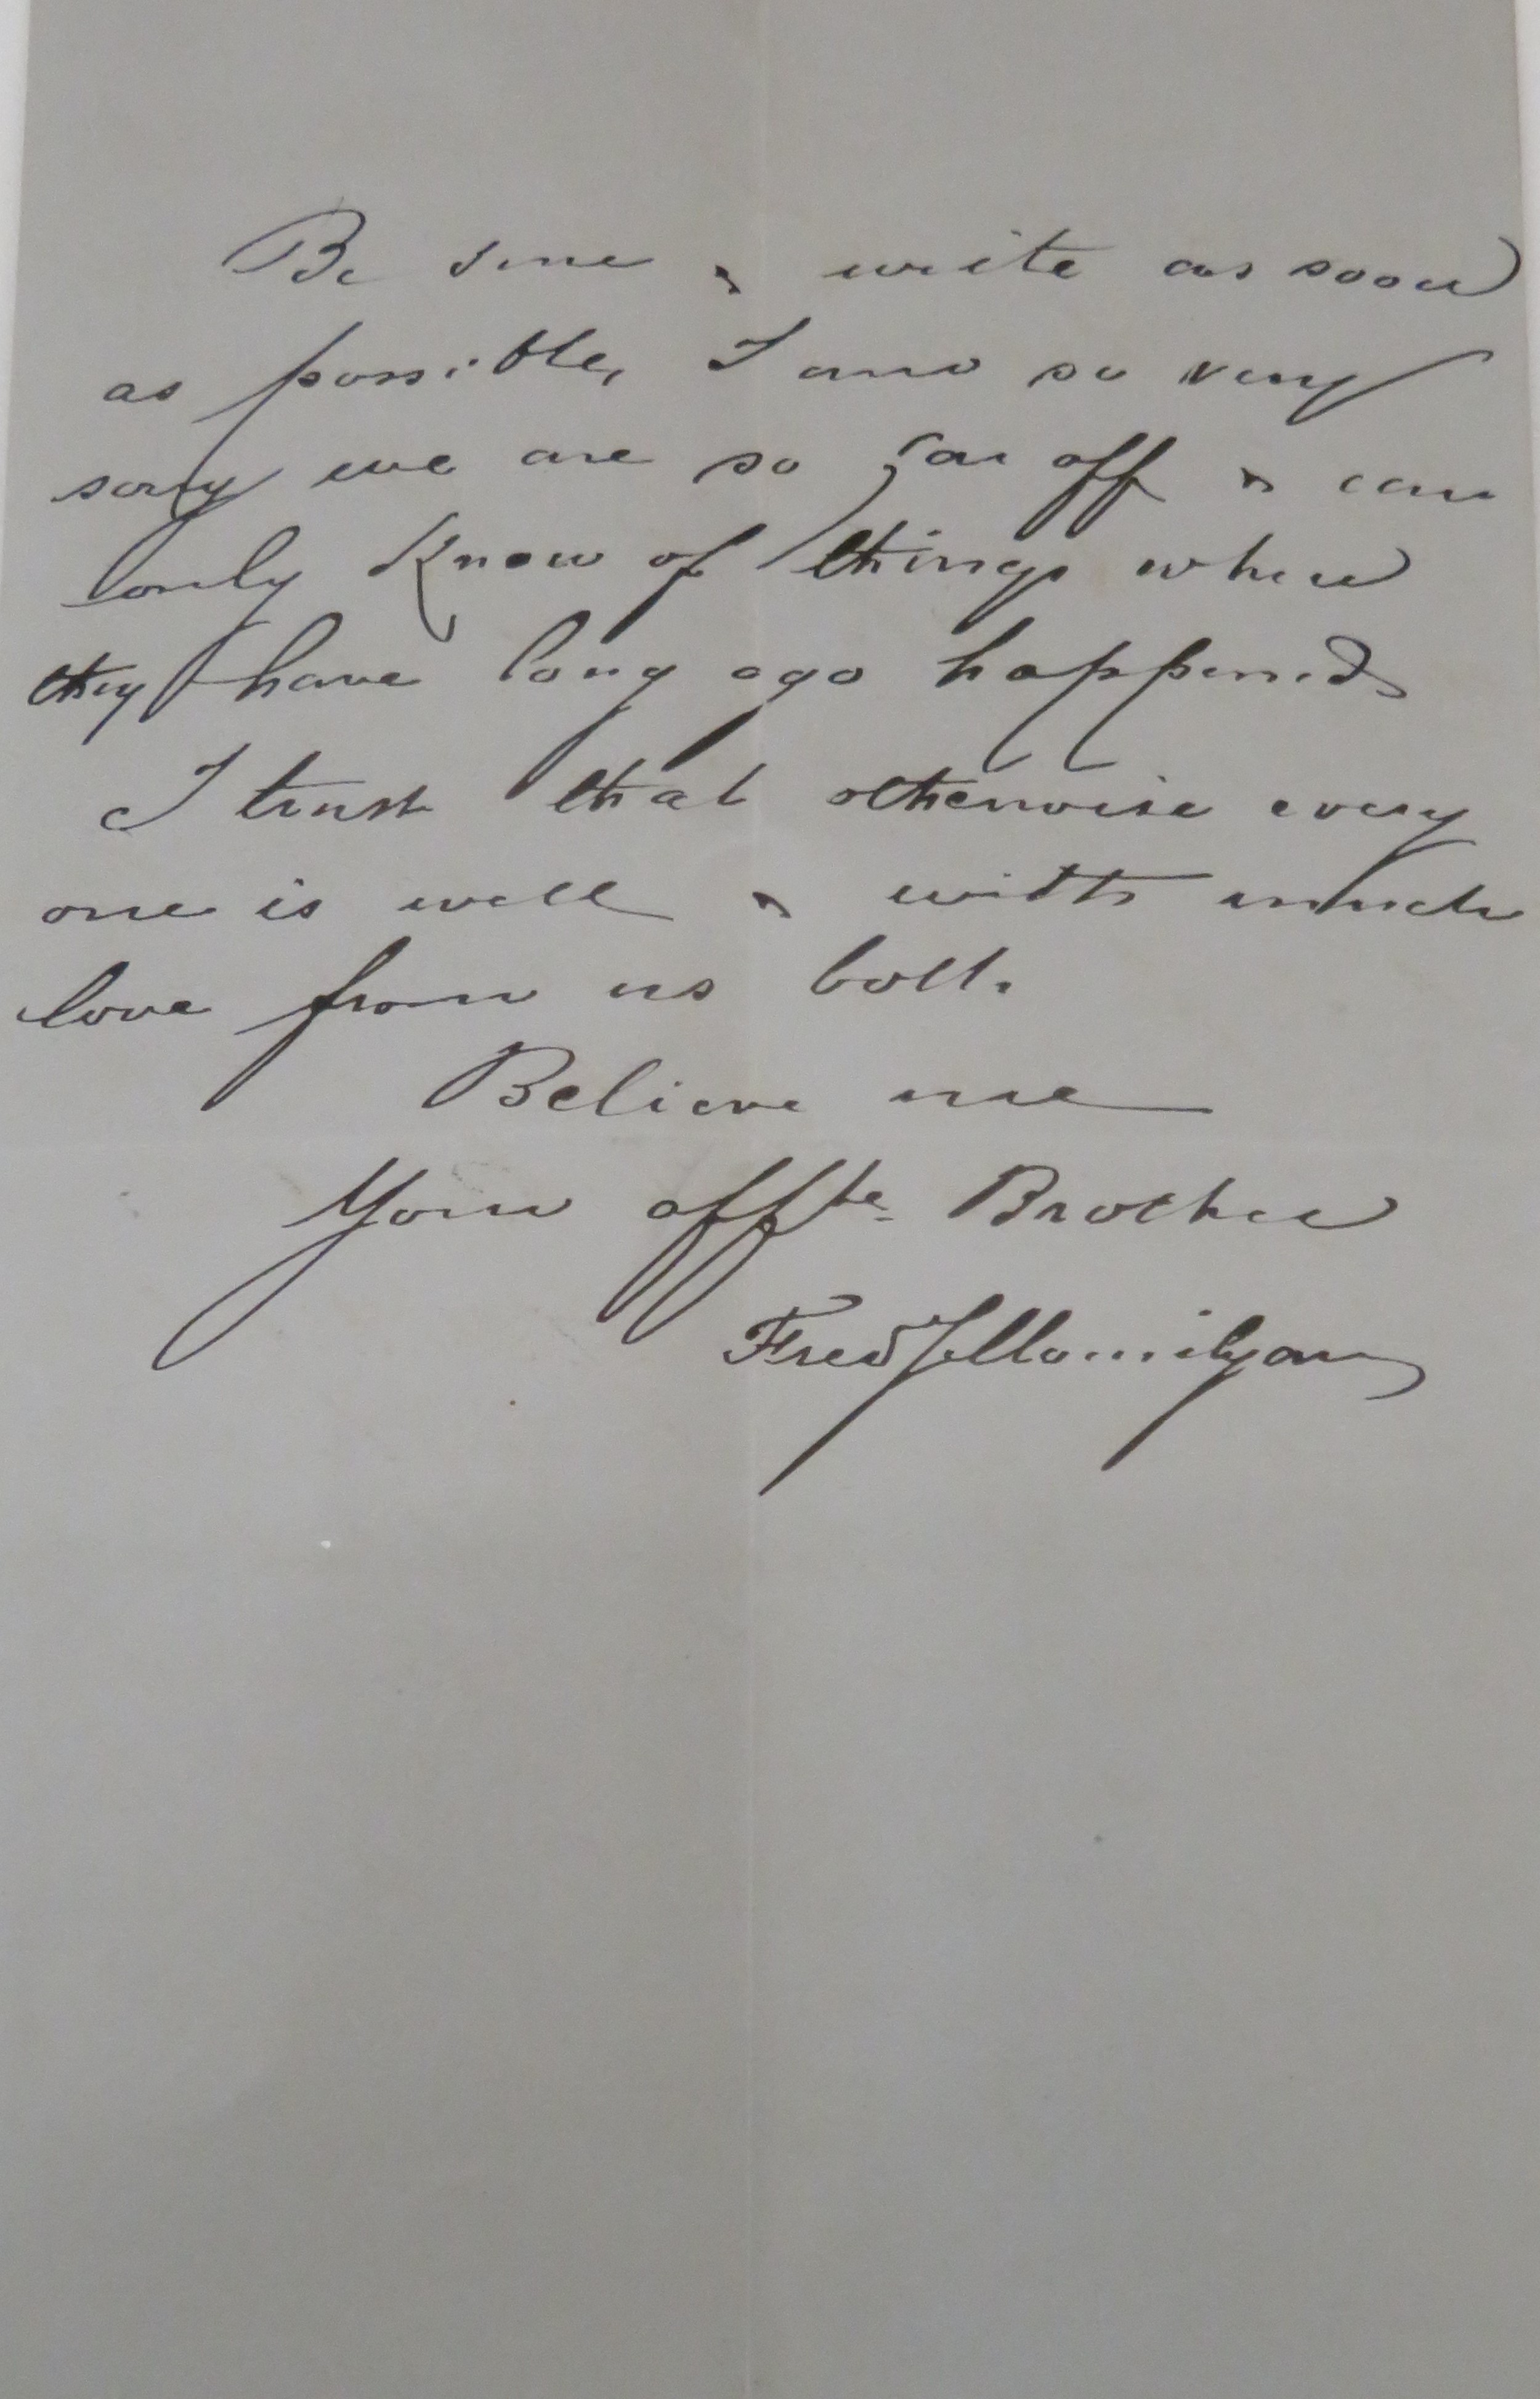 Be sure & write as soon
as possible, I am so very
sorry we are so far off & can
only know of things when
they have long ago happened
I trust that otherwise every
one is well & with much
love from us both.
Believe me
Your affte. Brother
Fred